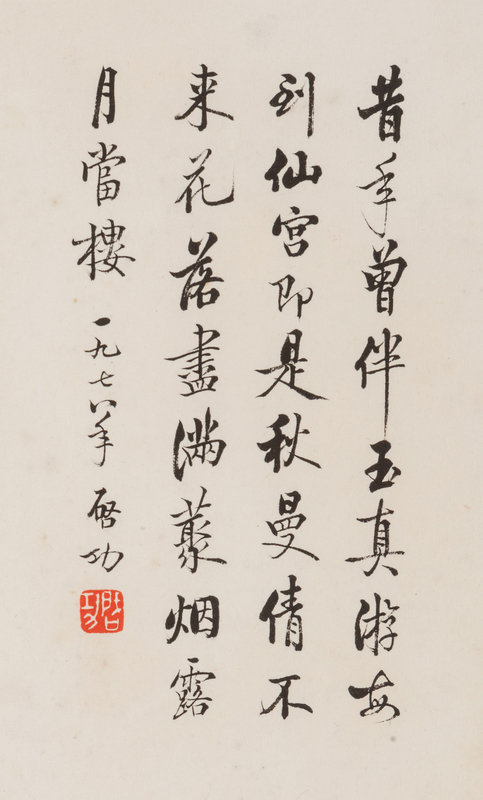 昔年曾伴玉真游每
到仙宫即是秋曼倩不
来花落盡滿叢烟露
月當樓 一九七八年 啓功
启功